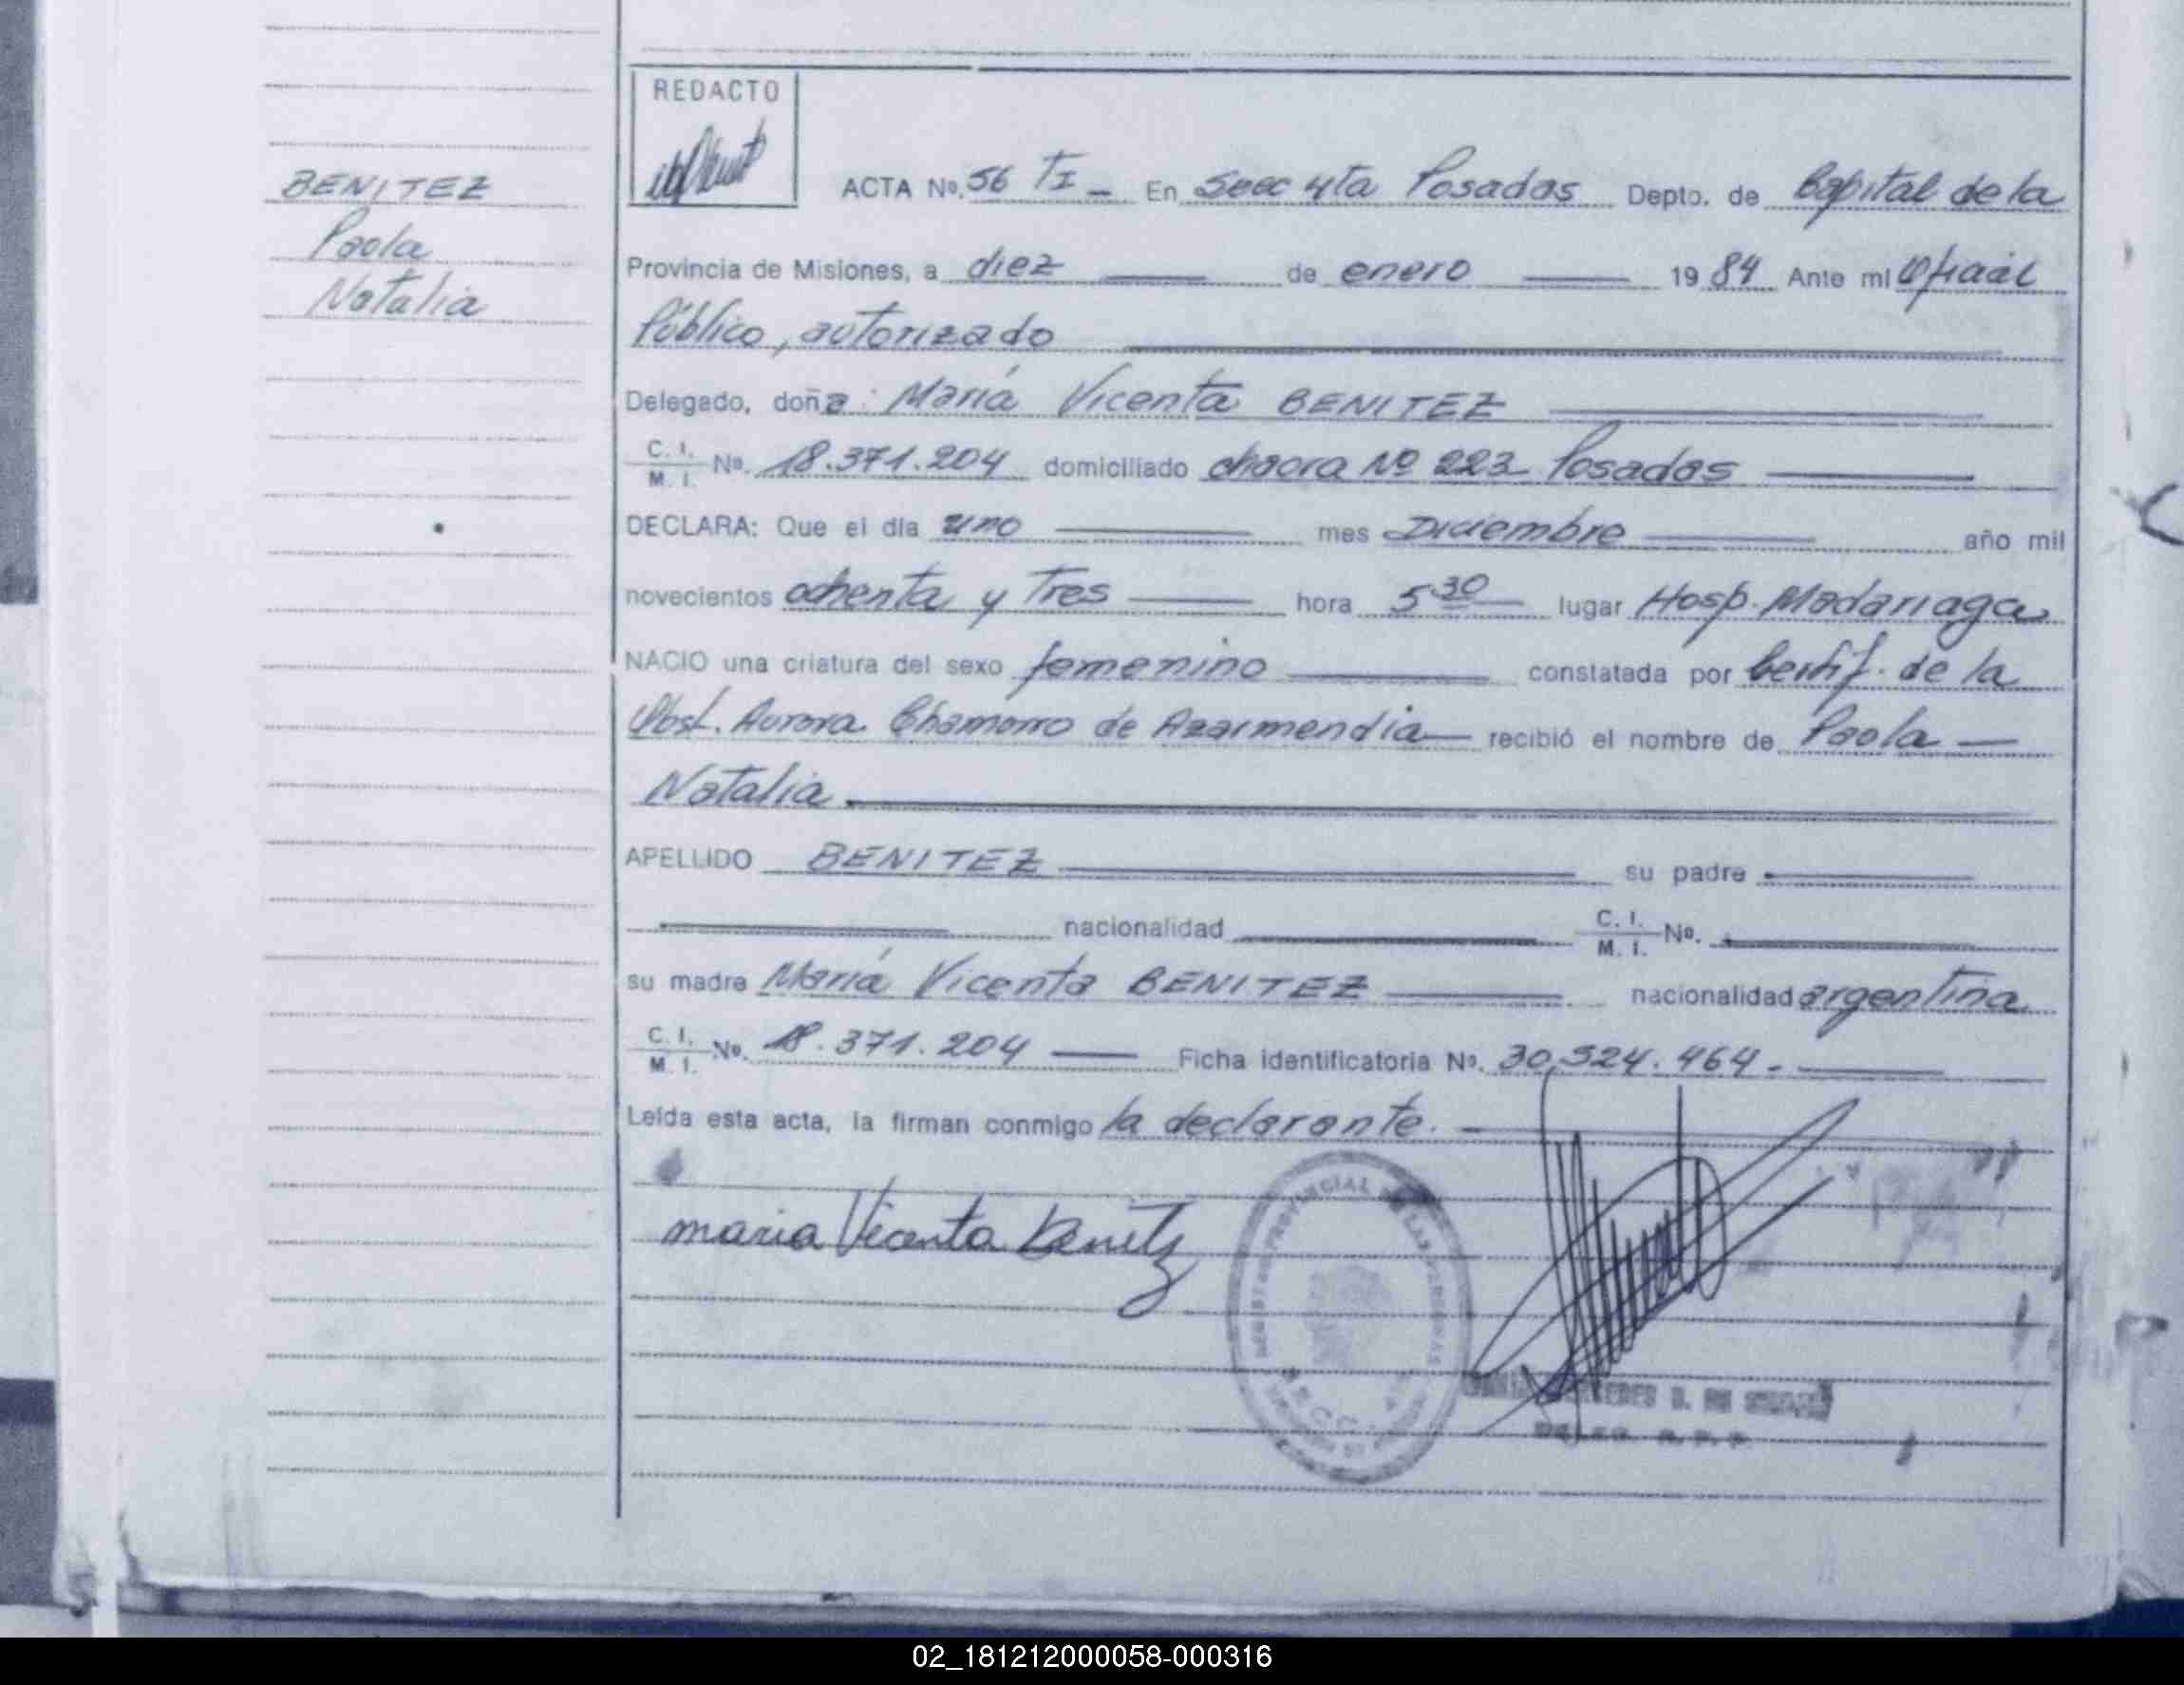 REDACTO
BENITEZ
Paola
Natalia
ACTA No. 56 TI - En Secc 4ta Posadas Depto. de Capital de la
Provincia de Misiones, a diez de enero 1984 Ante mi Oficial
Público, autorizado
Delegado, doña: María Vicenta BENITEZ
C. I. M. I. No. 18.371.204 domiciliado chacra Nº 223 Posadas
DECLARA: Que el día uno mes Diciembre año mil
novecientos ochenta y Tres hora 5 30 lugar Hosp. Madariaga
NACIO una criatura del sexo femenino constatada por Certif. de la
Obst. Aurora Chamorro de Azarmendia recibió el nombre de Paola
Natalia
APELLIDO BENITEZ su padre
nacionalidad C. I. M. I. No.
su madre María Vicenta BENITEZ nacionalidad argentina
C. I. M. I. No. 18.371.204 Ficha identificatoria No. 30.324.464.-
Leída esta acta, la firman conmigo la declarante.
maria Vicenta Benitez
PROVINCIAL DE LAS PERSONAS
02_181212000058-000316